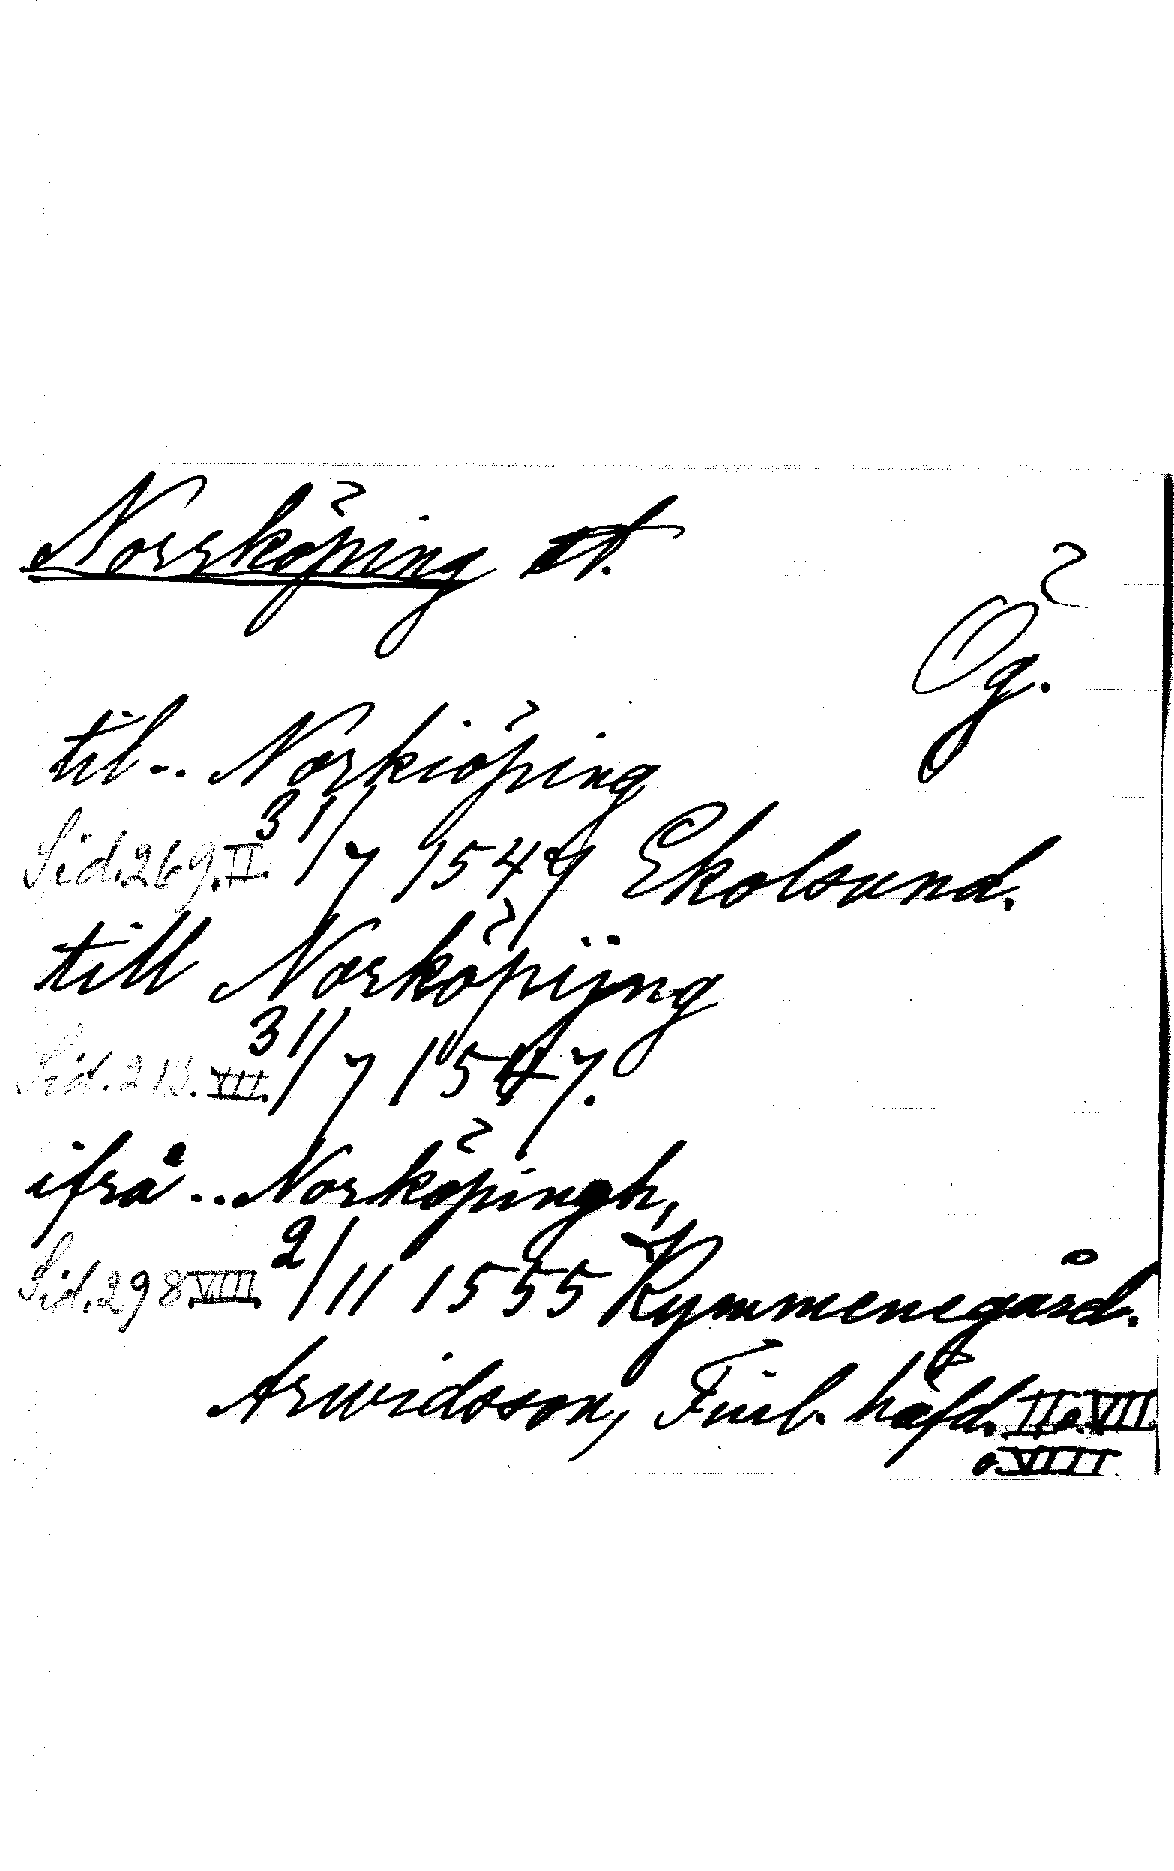 Norrköping st.
Ög.
til.. Norkiöping
Sid.269.II. 31/7 1547 Ekolsund.
till Norköpijng
Sid.213.VII. 31/7 1547.
ifrå.. Norköpingh,
Sid.298.VIII. 2/11 1555 Kymmenegård.
Arwidsson, Finl. häfd. II o. VII.
o. VIII